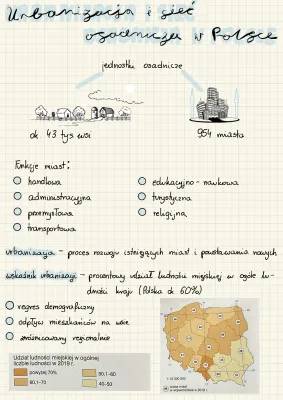 Urbanizacja i sieć
osadnicza w Polsce
jednostki osadnicze
ok 43 tys wsi
954 miasta
Funkcje miast:
handlowa
administracyjna
przemysłowa
transportowa
edukacyjno - naukowa
turystyczna
religijna
urbanizacja - proces rozwoju istniejących miast i powstawania nowych
wskaźnik urbanizacji - procentowy udział ludności miejskiej w ogóle lu-
dności kraju (Polska ok 60%)
regres demograficzny
odpływ mieszkańców na wsie
zróżnicowany regionalnie
Udział ludności miejskiej w ogólnej
liczbie ludności w 2019 r.
powyżej 70%
60,1-70
50,1-60
40-50